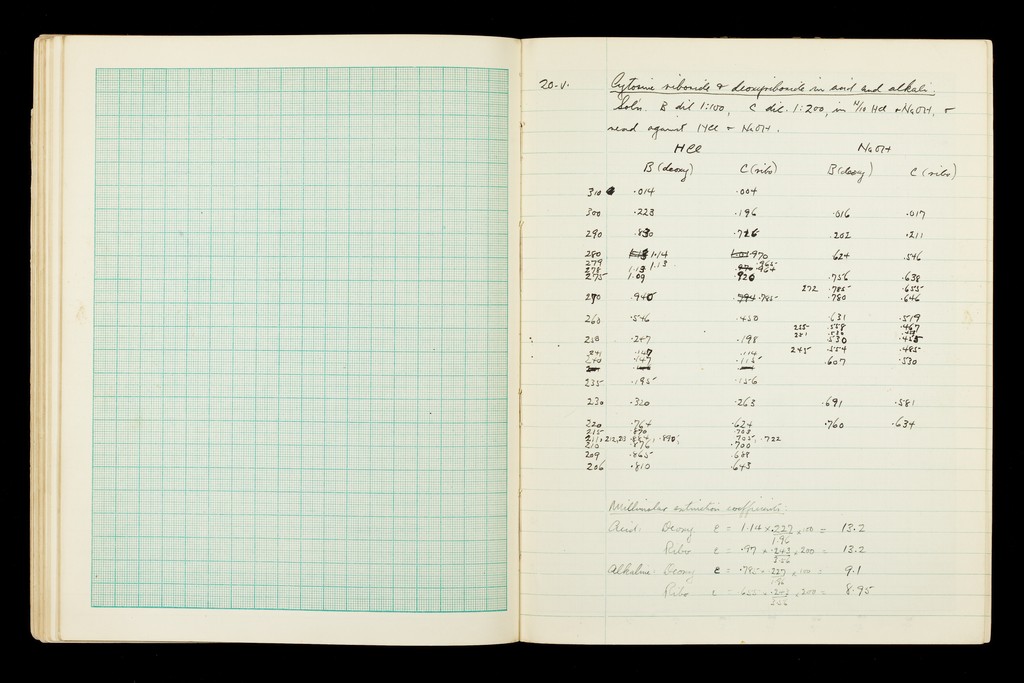 20-V. Cytosine riboside & deoxyriboside in acid and alkali.
Sol'n. B dil 1:100, C dil. 1:200, in N/10 HCl & NaOH, &
read against HCl & NaOH.
HCl NaOH
B (deoxy) C (ribo) B (deoxy) C (ribo)
310 .014 .004
300 .223 .196 .016 .017
290 .830 .726 .202 .211
280 1.14 .970 .624 .546
279 1.13 .965
278 1.13 .964
275 1.09 .920 .756 .638
272 .785 .655
270 .940 .785 .780 .646
260 .546 .450 .631 .519
255 .558 .467
250 .247 .198 .530 .455
245 .554 .485
241 .147 .114
240 .147 .115 .607 .530
235 .195 .156
230 .320 .263 .691 .581
220 .764 .624 .760 .634
215 .870 .703
211, 212, 213 .884, .890, .705, .722
210 .876 .700
209 .865 .688
206 .810 .643
Millimolar extinction coefficients:
Acid: Deoxy ε = 1.14 × .227 × 100 = 13.2
1.96
Ribo ε = .97 × .243 × 200 = 13.2
3.56
Alkaline: Deoxy ε = .785 × .227 × 100 = 9.1
1.96
Ribo ε = .655 × .243 × 200 = 8.95
3.56